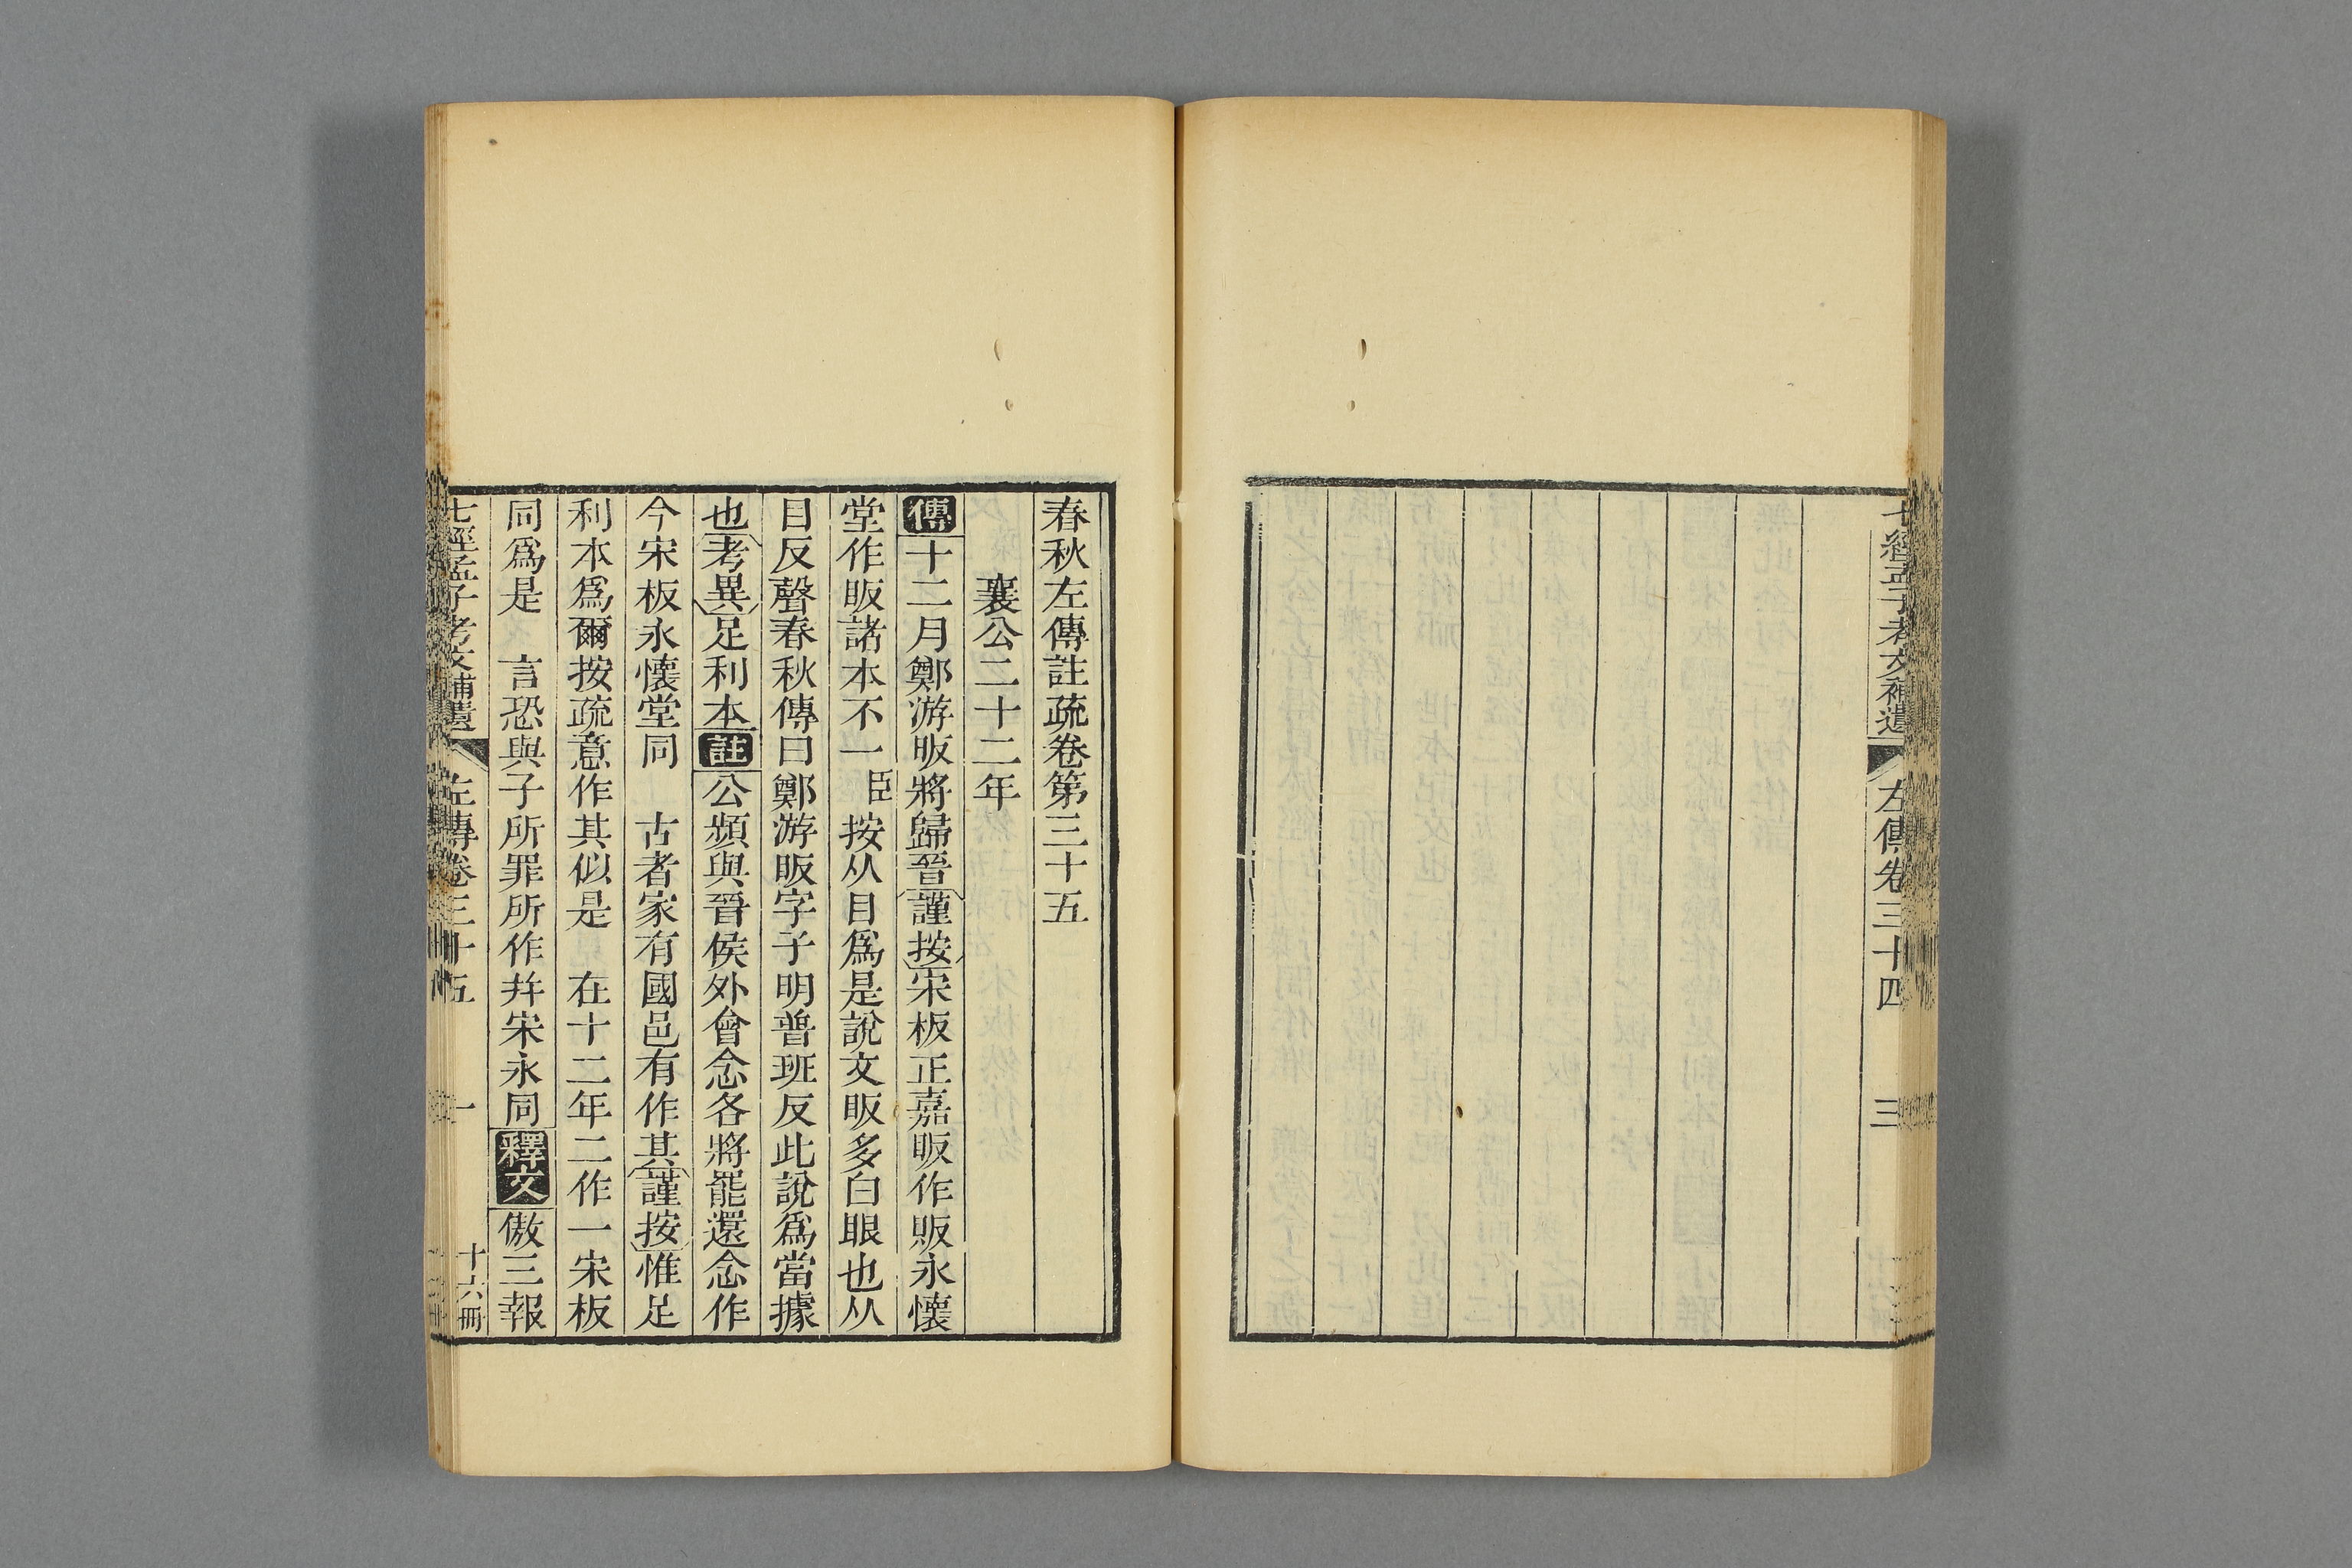 七經孟子考文補遺 左傳卷三十四 三
春秋左傳註疏卷第三十五
襄公二十二年
傳十二月鄭游眅將歸晉謹按宋板正嘉眅作販永懷
堂作眅諸本不一臣按从目爲是說文眅多白眼也从
目反聲春秋傳曰鄭游眅字子明普班反此說爲當據
也考異足利本註公頻與晉侯外會念各將罷還念作
今宋板永懷堂同 古者家有國邑有作其謹按惟足
利本爲爾按疏意作其似是 在十二年二作一宋板
同爲是 言恐與子所罪所作幷宋永同釋文傲三報
七經孟子考文補遺 左傳卷三十五 一 十六冊